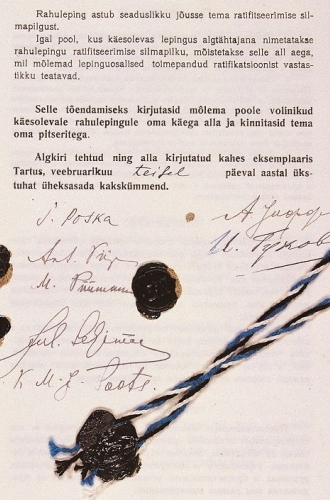 Rahuleping astub seaduslikku jõusse tema ratifitseerimise sil-
mapilgust.
Igal pool, kus käesolevas lepingus algtähtajana nimetatakse
rahulepingu ratifitseerimise silmapilku, mõistetakse selle all aega,
mil mõlemad lepinguosalised toimepandud ratifikatsioonist vastas-
tikku teatavad.
Selle tõendamiseks kirjutasid mõlema poole volinikud
käesolevale rahulepingule oma käega alla ja kinnitasid tema
oma pitseritega.
Algkiri tehtud ning alla kirjutatud kahes eksemplaaris
Tartus, veebruarikuu teisel päeval aastal üks-
tuhat üheksasada kakskümmend.
J. Poska
А. Иоффе
Ant. Piip
И. Гуков
M. Püümann
Jul. Seljamaa
K M. J. Soots.